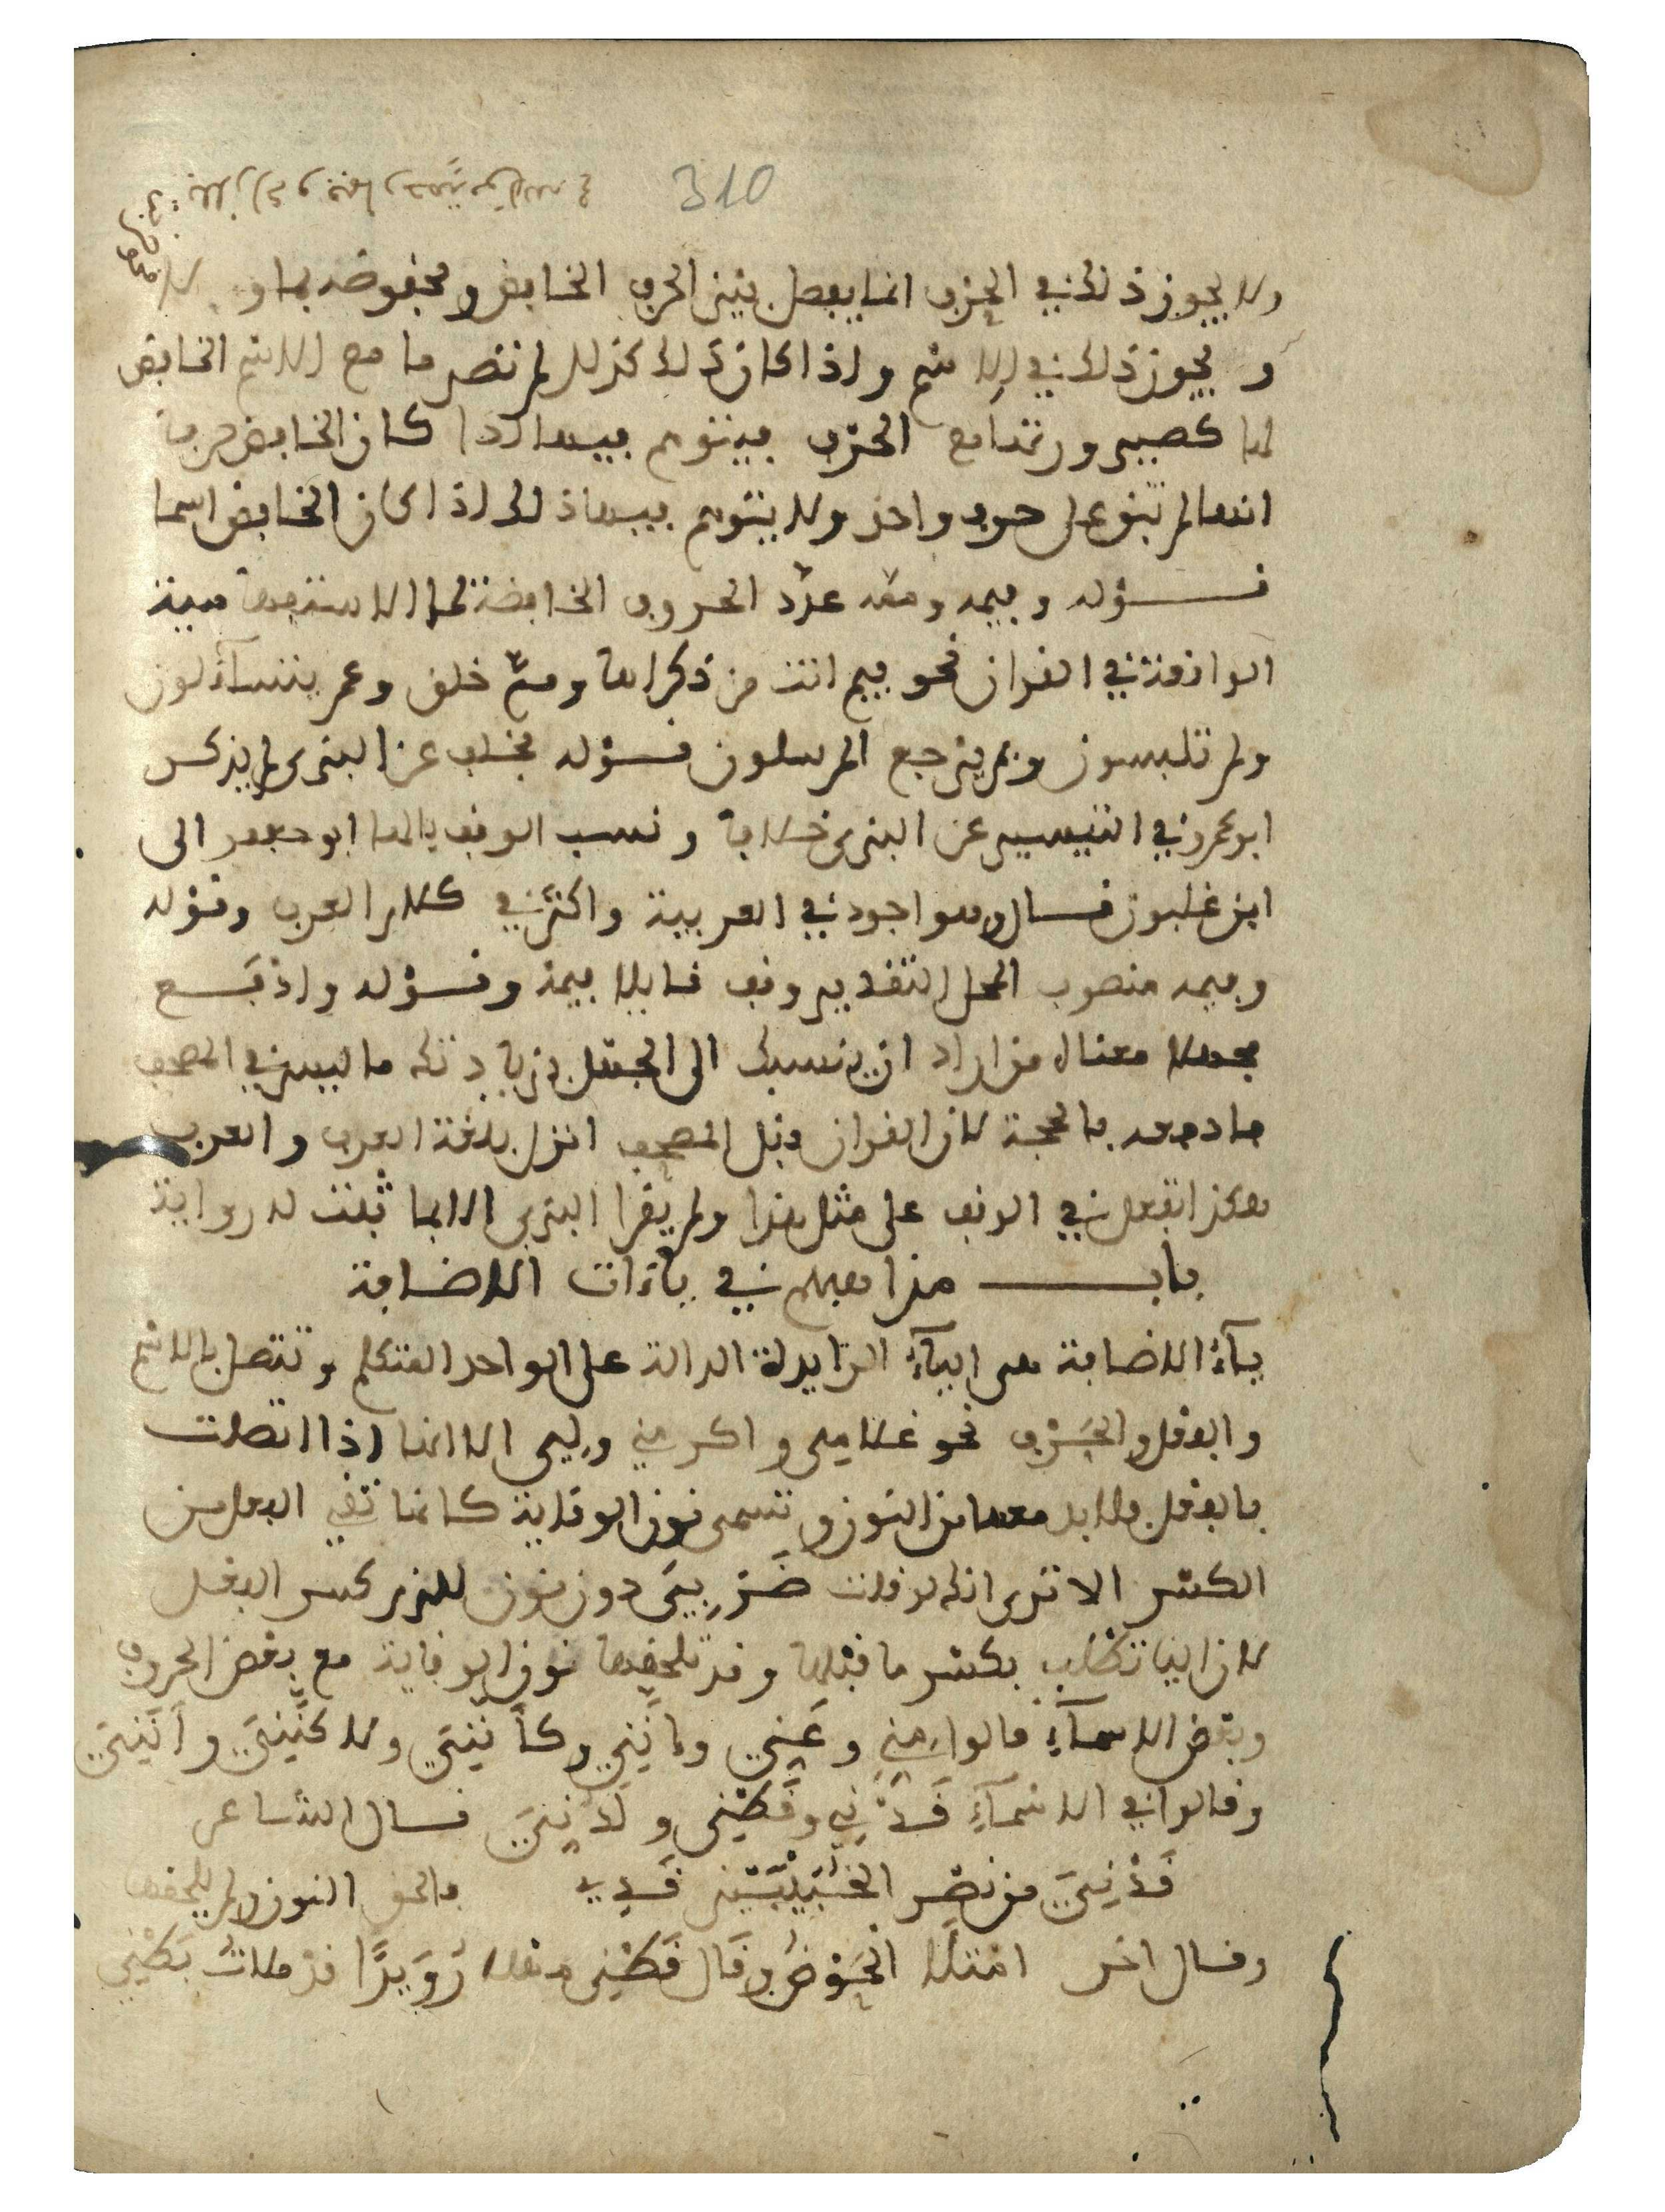 310
ولا يجوز ذلك في الحرف انما يفصل بين الحرف الخافض ومخفوضه بما و لا
و يجوز ذلك في الاسم واذا كان ذلك كذلك لم تصر ما مع الاسم الخافض
لها كصيرورتها مع الحرف فيتوهم فيها اذا كان الخافض حرفا
انها لم تبق على حرف واحد ولا يتوهم فيها ذلك اذا كان الخافض اسما
قوله وفيمه ومَّه عدّد الحروف الخافضة لما الاستفهامية
الواقعة في القران نحو فيم انت من ذكراها وممَّ خلق وعم يتسآءلون
ولم تلبسون وبم يرجع المرسلون قوله بخلف عن البزى لم يذكر
ابو عمرو في التيسير عن البزى خلافا ونسب الوقف بالها ابو جعفر الى
ابن غلبون قال وهو اجود في العربية واكثر في كلام العرب وقوله
وفيمه منصوب المحل التقدير وقف قايلا فيمه وقوله وادفع
مجهلا معناه من اراد ان ينسبك الى الجهل بزيادتك ما ليس في المصحف
فادفعه بالحجة لان القران قبل المصحف انزل بلغة العرب والعرب
هكذا تفعل في الوقف على مثل هذا ولم يقرا البزى الا بما ثبتت له رواية
باب مذاهبهم في ياءات الاضافة
يآءُ الاضافة هي اليآءُ الزايدة الدالة على الواحد المتكلم وتتصل بالاسم
والفعل والحَرْف نحو غلامي واكرمني ولي الا انها اذا اتصلت
بالفعل فلا بد معها من النون وتسمى نون الوقاية كانها تقي الفعل من
الكسر الا ترى انك لو قلت ضَرَبِيَ دون نون للزم كسر الفعل
لان اليا تطلب بكسر ما قبلها وقد تلحقها نون الوقاية مع بعض الحروف
وبعض الاسمآءِ قالوا مِنِّي وعَنِّي وإنَّنِي وكأَنَّنِيَ ولاكنَّنِيَ وأَنَّنِيَ
وقالوا في الاسمآءِ قَدْنِي وقَطْنِي ولَدُنِيَ قال الشاعر
قَدْنِيَ من نصْرِ الخُبَيْبَيْنِ قَدِي فالحق النون ولم يلحقها
وقال اخر امتلَا الحَوْضُ وقَال قَطْنِي مهلا رُوَيْدًا قد ملاتَ بَطْنِي